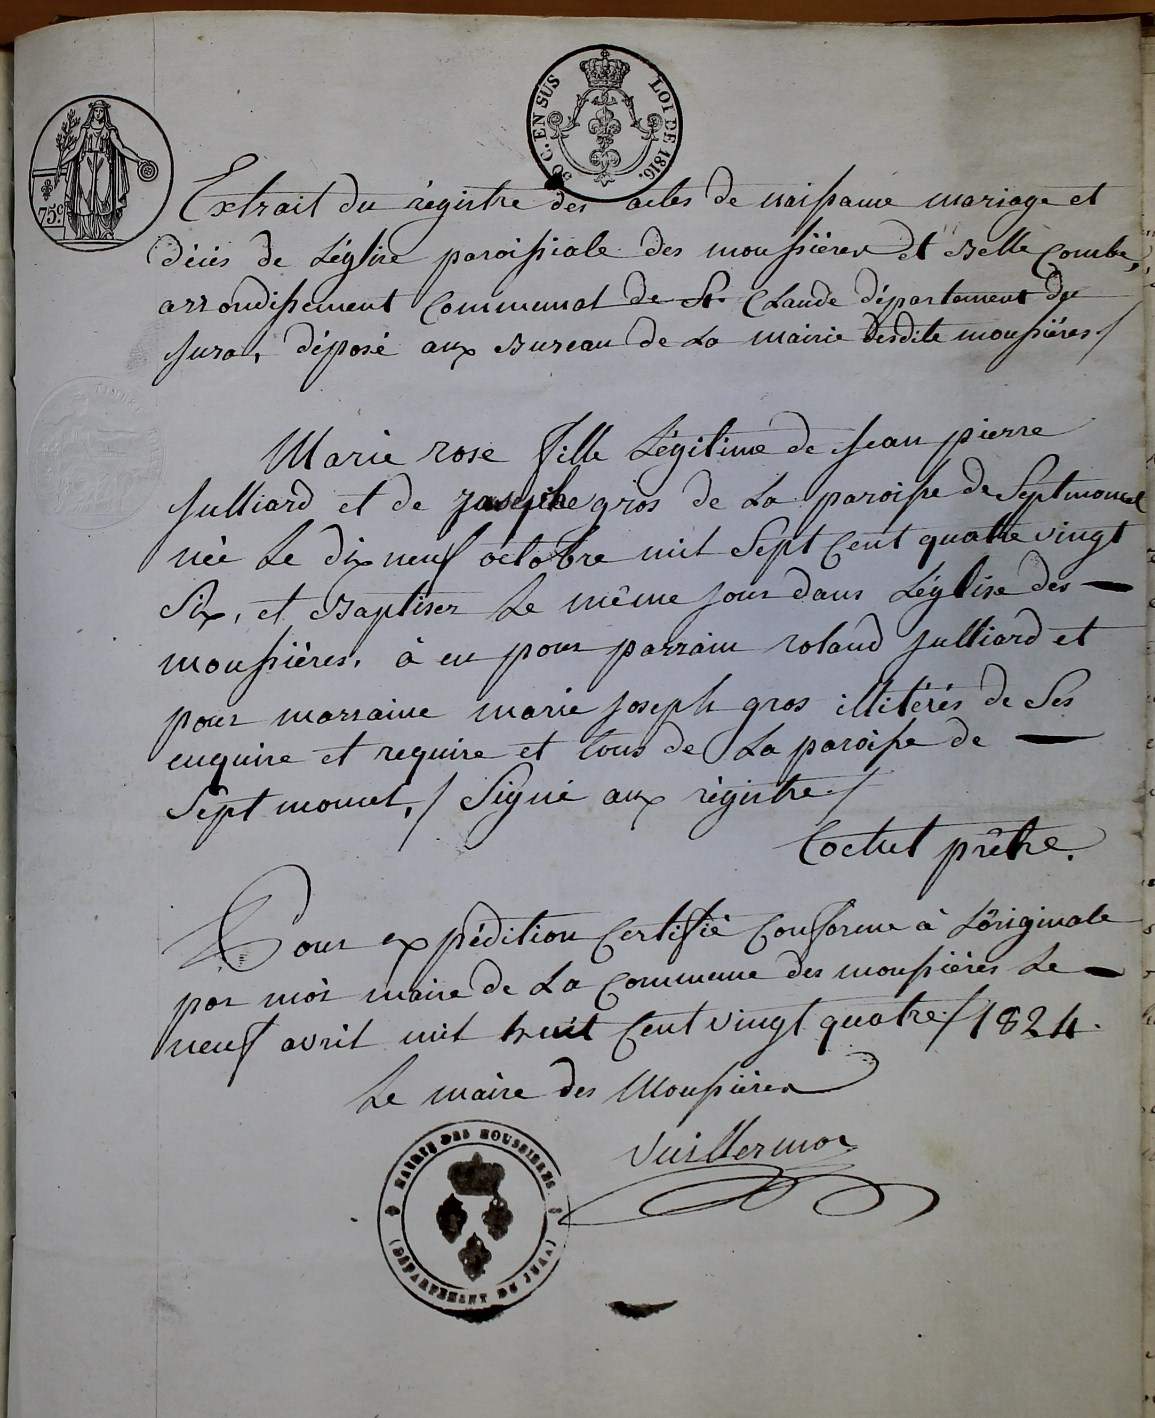 50 C. EN SUS LOI DE 1816.
75c
Extrait du régistre des actes de naissance mariage et
décés de L'église paroissiale des moussières et Belle Combe,
arrondissement Communal de St. Claude département du
Jura, déposé aux Bureau de La mairie desdite moussières /
Marie rose fille Légitime de Jean pierre
Julliard et de josephe gros de La paroisse de Septmoncel
née Le dix neuf octobre mil Sept Cent quatre vingt
Six, et Baptiser Le même jour dans L'église des —
moussières, à eu pour parrain roland Julliard et
pour marraine marie joseph gros illitérés de Ses
enquire et require et tous de La paroisse de —
Septmoncel, / Signé aux régistre /
Coctut prêtre.
Pour expédition Certifié Conforme à L'originale
par moi maire de La Commune des moussières Le —
neuf avril mil huit Cent vingt quatre / 1824.
Le maire des Moussières
Vuillermoz
MAIRIE DES MOUSSIERES
(DÉPARTEMANT DU JURA)